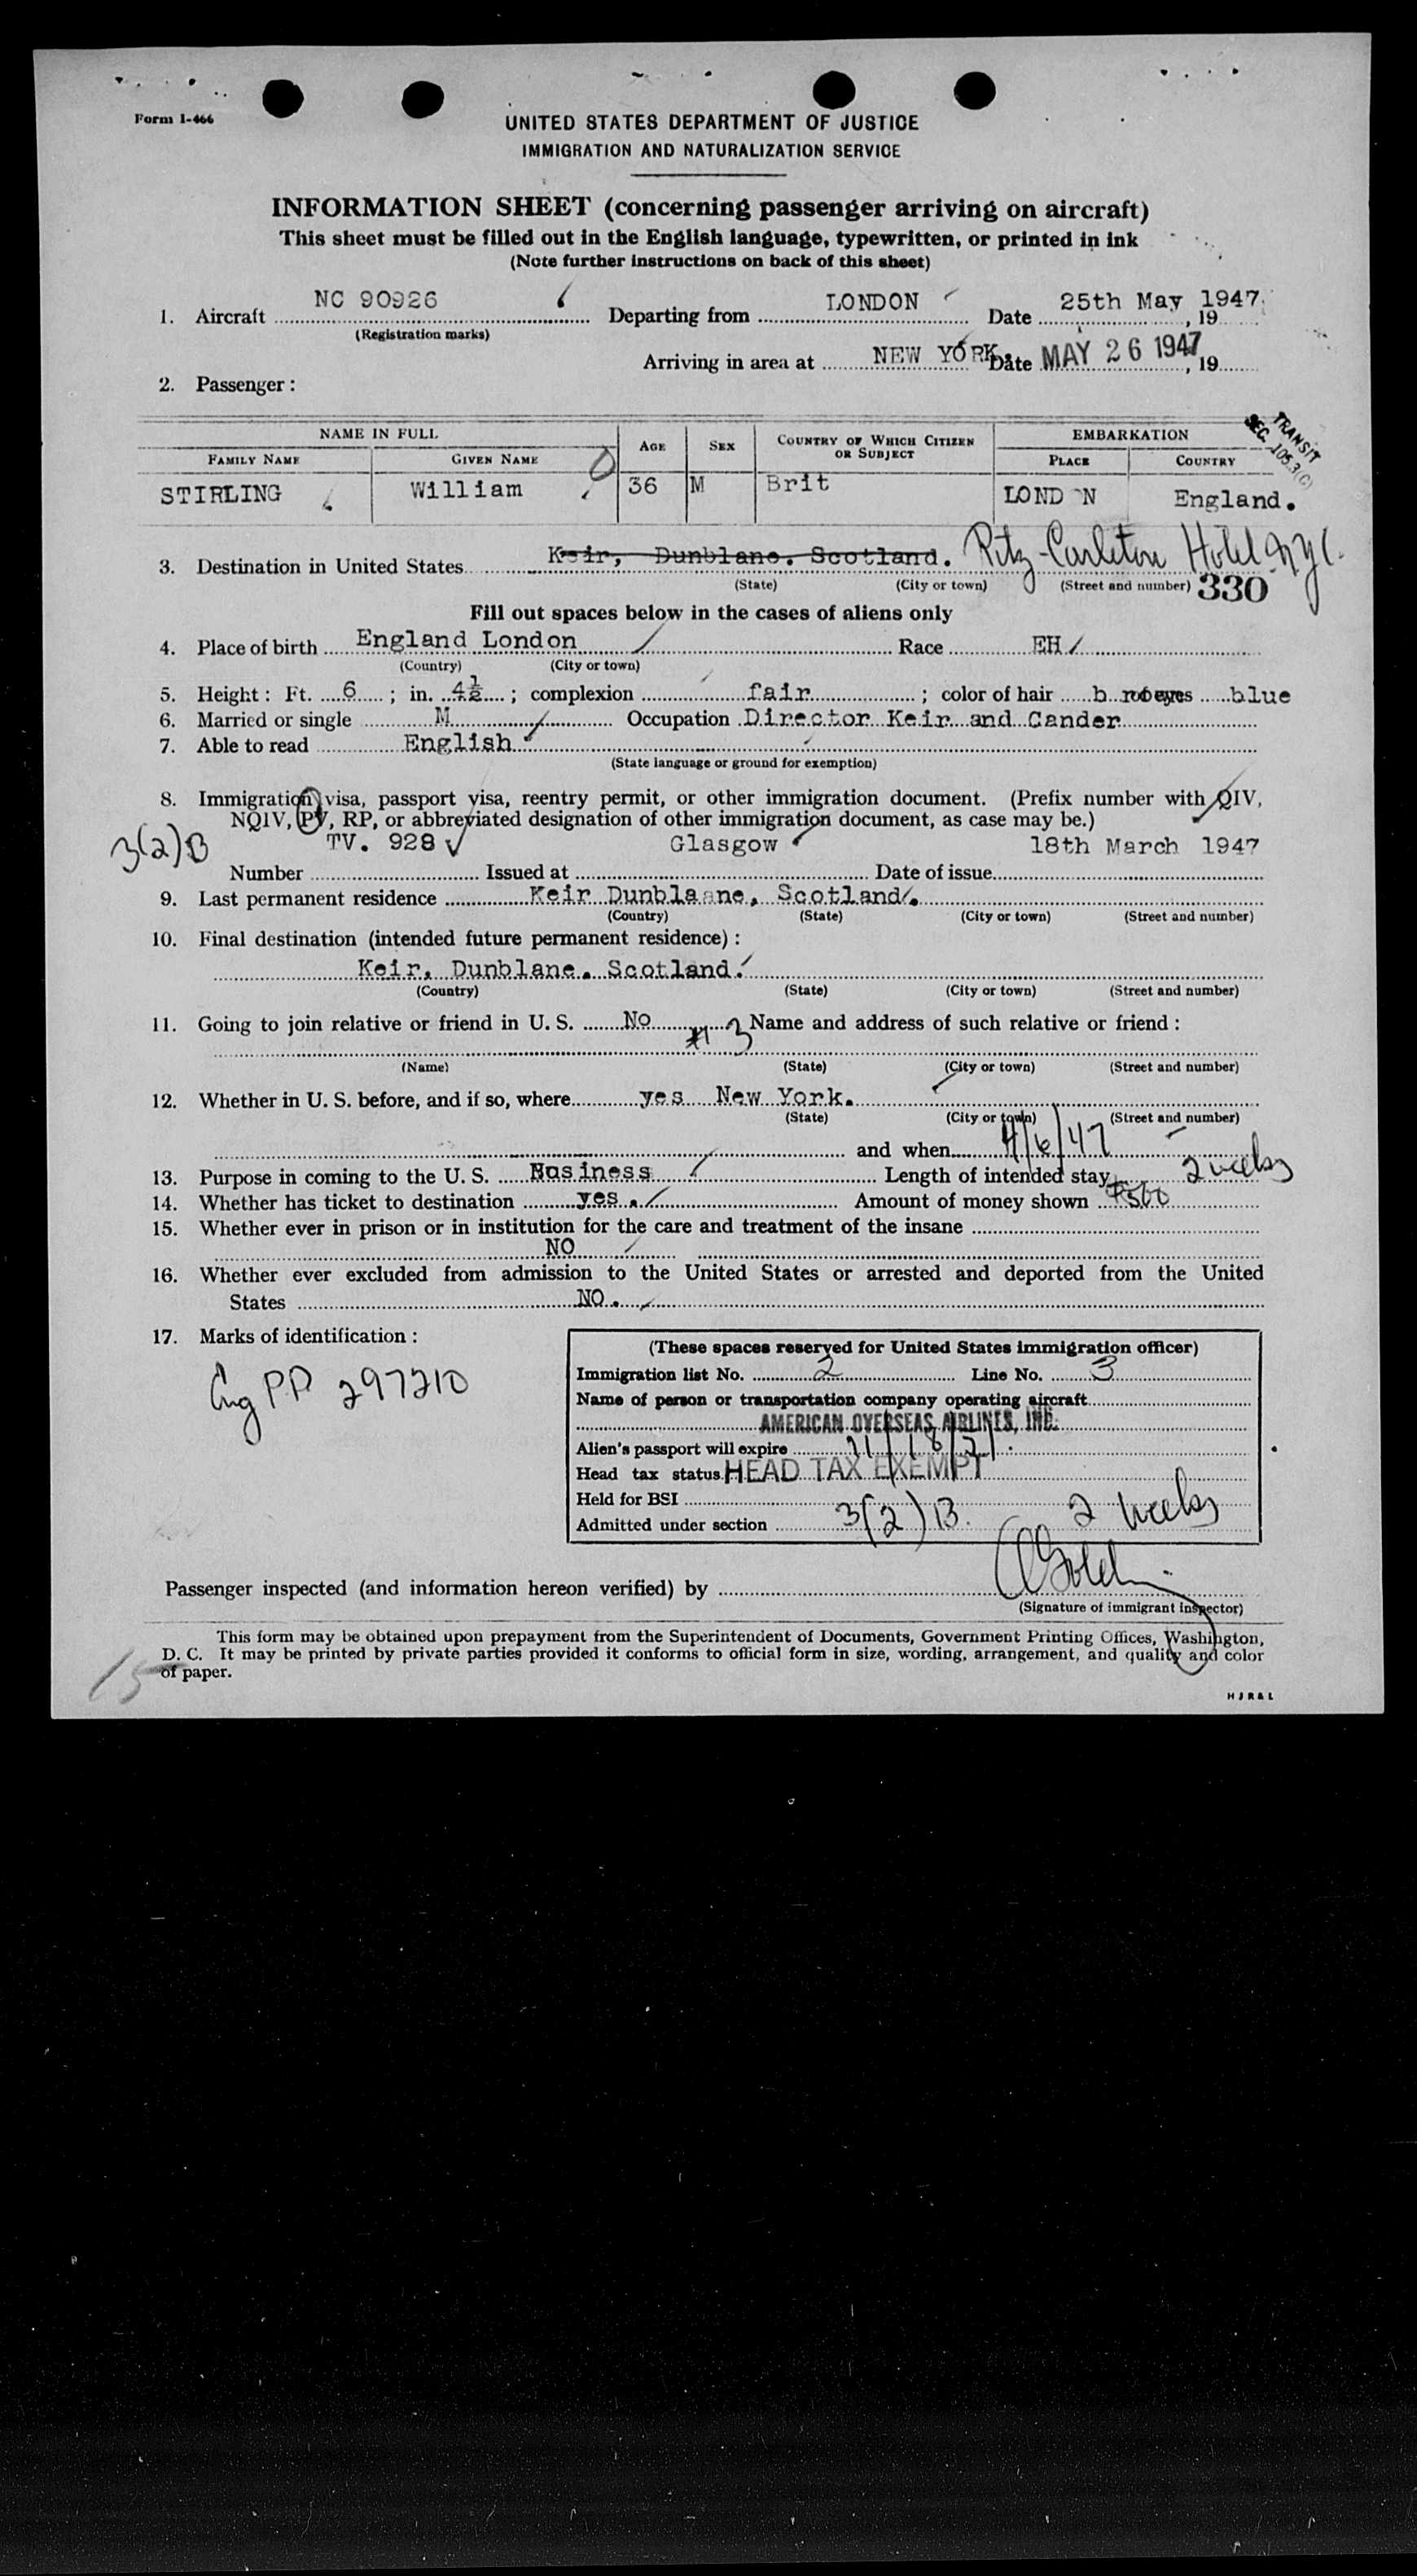 Form I-466
UNITED STATES DEPARTMENT OF JUSTICE
IMMIGRATION AND NATURALIZATION SERVICE
INFORMATION SHEET (concerning passenger arriving on aircraft)
This sheet must be filled out in the English language, typewritten, or printed in ink
(Note further instructions on back of this sheet)
1. Aircraft NC 90926 Departing from LONDON Date 25th May 1947, 19
(Registration marks)
Arriving in area at NEW YORK. Date MAY 26 1947, 19
2. Passenger:
TRANSIT
SEC. 105.3(C)
NAME IN FULL AGE SEX COUNTRY OF WHICH CITIZEN OR SUBJECT EMBARKATION
FAMILY NAME GIVEN NAME PLACE COUNTRY
STIRLING William 36 M Brit LOND N England.
3. Destination in United States Keir, Dunblane. Scotland. Ritz-Carleton Hotel NYC.
(State) (City or town) (Street and number) 330
Fill out spaces below in the cases of aliens only
4. Place of birth England London Race EH
(Country) (City or town)
5. Height: Ft. 6; in. 4½; complexion fair; color of hair b ro eyes blue
6. Married or single M Occupation Director Keir and Cander
7. Able to read English
(State language or ground for exemption)
8. Immigration visa, passport visa, reentry permit, or other immigration document. (Prefix number with QIV,
NQIV, PV, RP, or abbreviated designation of other immigration document, as case may be.)
3(2)B TV. 928 Glasgow 18th March 1947
Number Issued at Date of issue
9. Last permanent residence Keir Dunblaane, Scotland.
(Country) (State) (City or town) (Street and number)
10. Final destination (intended future permanent residence):
Keir, Dunblane. Scotland.
(Country) (State) (City or town) (Street and number)
11. Going to join relative or friend in U. S. No Name and address of such relative or friend:
# 3
(Name) (State) (City or town) (Street and number)
12. Whether in U. S. before, and if so, where yes New York.
(State) (City or town) (Street and number)
and when 4/6/47
13. Purpose in coming to the U. S. Business Length of intended stay 2 weeks
14. Whether has ticket to destination yes. Amount of money shown $500
15. Whether ever in prison or in institution for the care and treatment of the insane
NO
16. Whether ever excluded from admission to the United States or arrested and deported from the United
States NO.
17. Marks of identification:
PP 297210
(These spaces reserved for United States immigration officer)
Immigration list No. 2 Line No. 3
Name of person or transportation company operating aircraft
AMERICAN OVERSEAS AIRLINES, INC.
Alien's passport will expire
Head tax status HEAD TAX EXEMPT
Held for BSI
Admitted under section 3(2)B. 2 weeks
Passenger inspected (and information hereon verified) by
(Signature of immigrant inspector)
This form may be obtained upon prepayment from the Superintendent of Documents, Government Printing Offices, Washington,
D. C. It may be printed by private parties provided it conforms to official form in size, wording, arrangement, and quality and color
of paper.
15
H J R & L